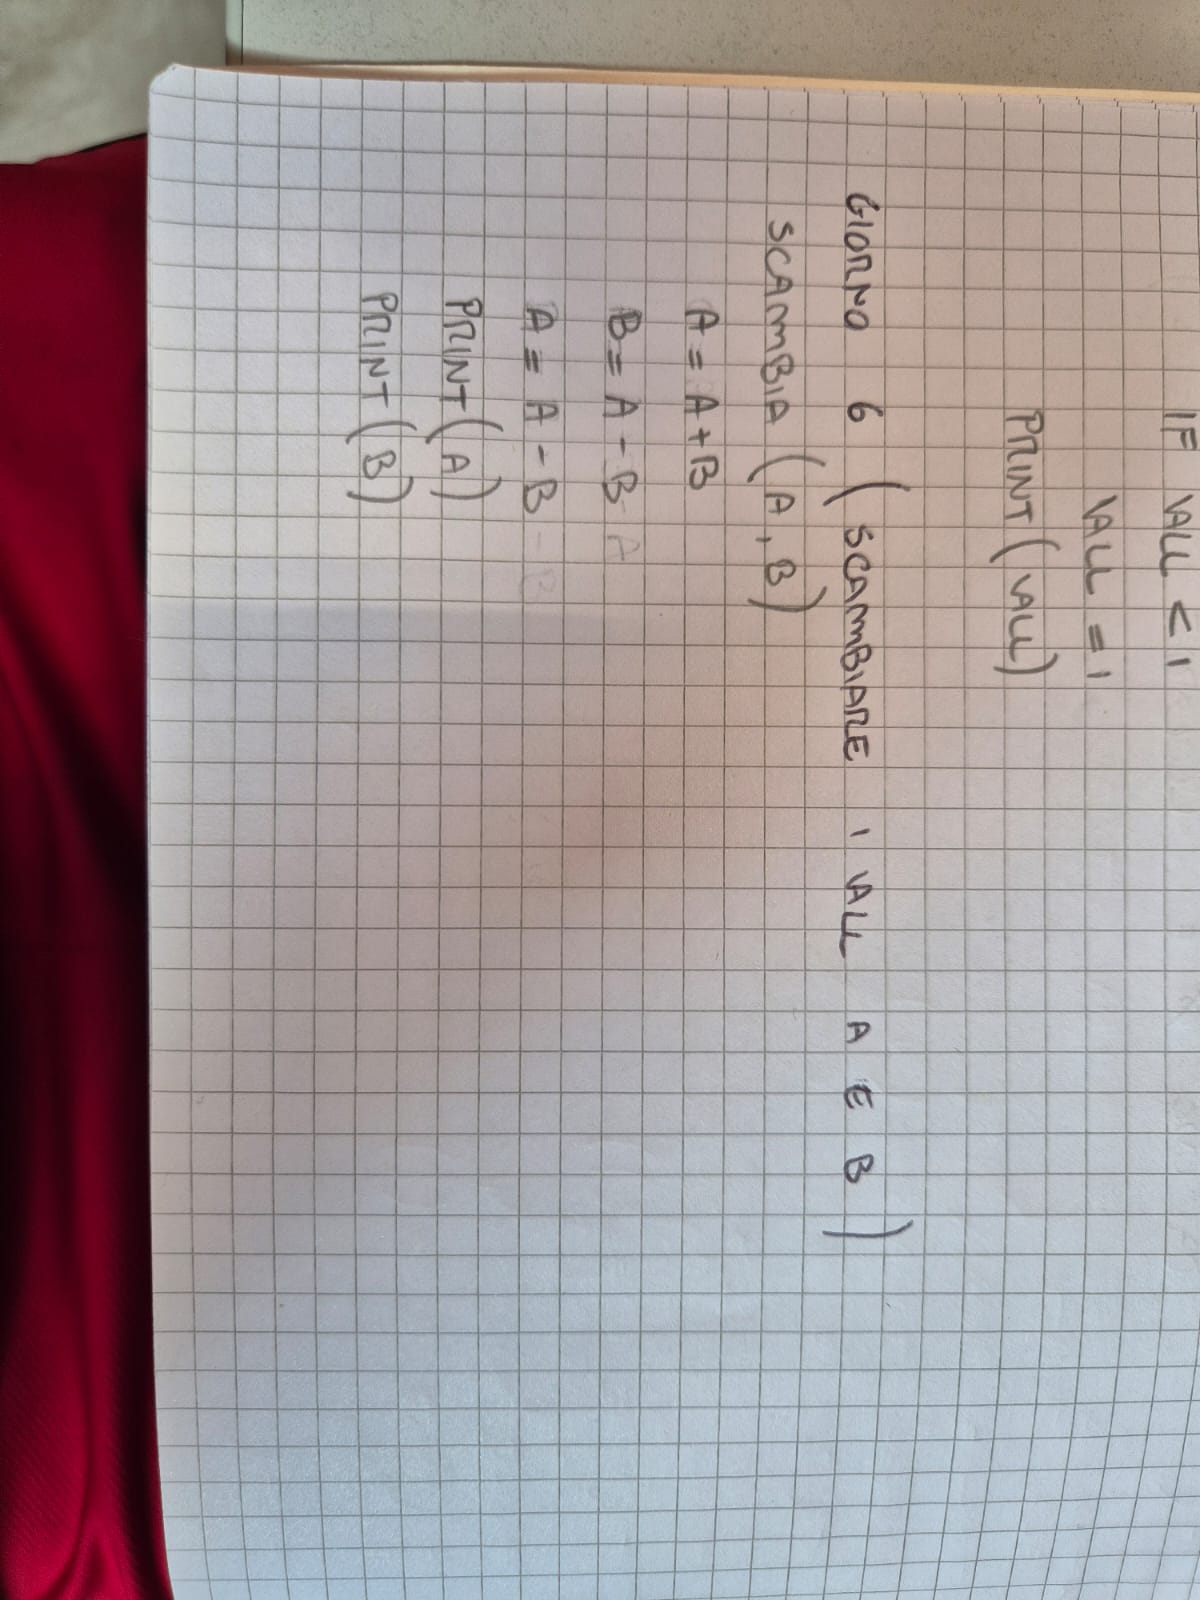 IF VALL < 1
VALL = 1
PRINT (VALL)
GIORNO 6 (SCAMBIARE I VALL A E B)
SCAMBIA (A, B)
A = A + B
B = A - B
A = A - B
PRINT (A)
PRINT (B)